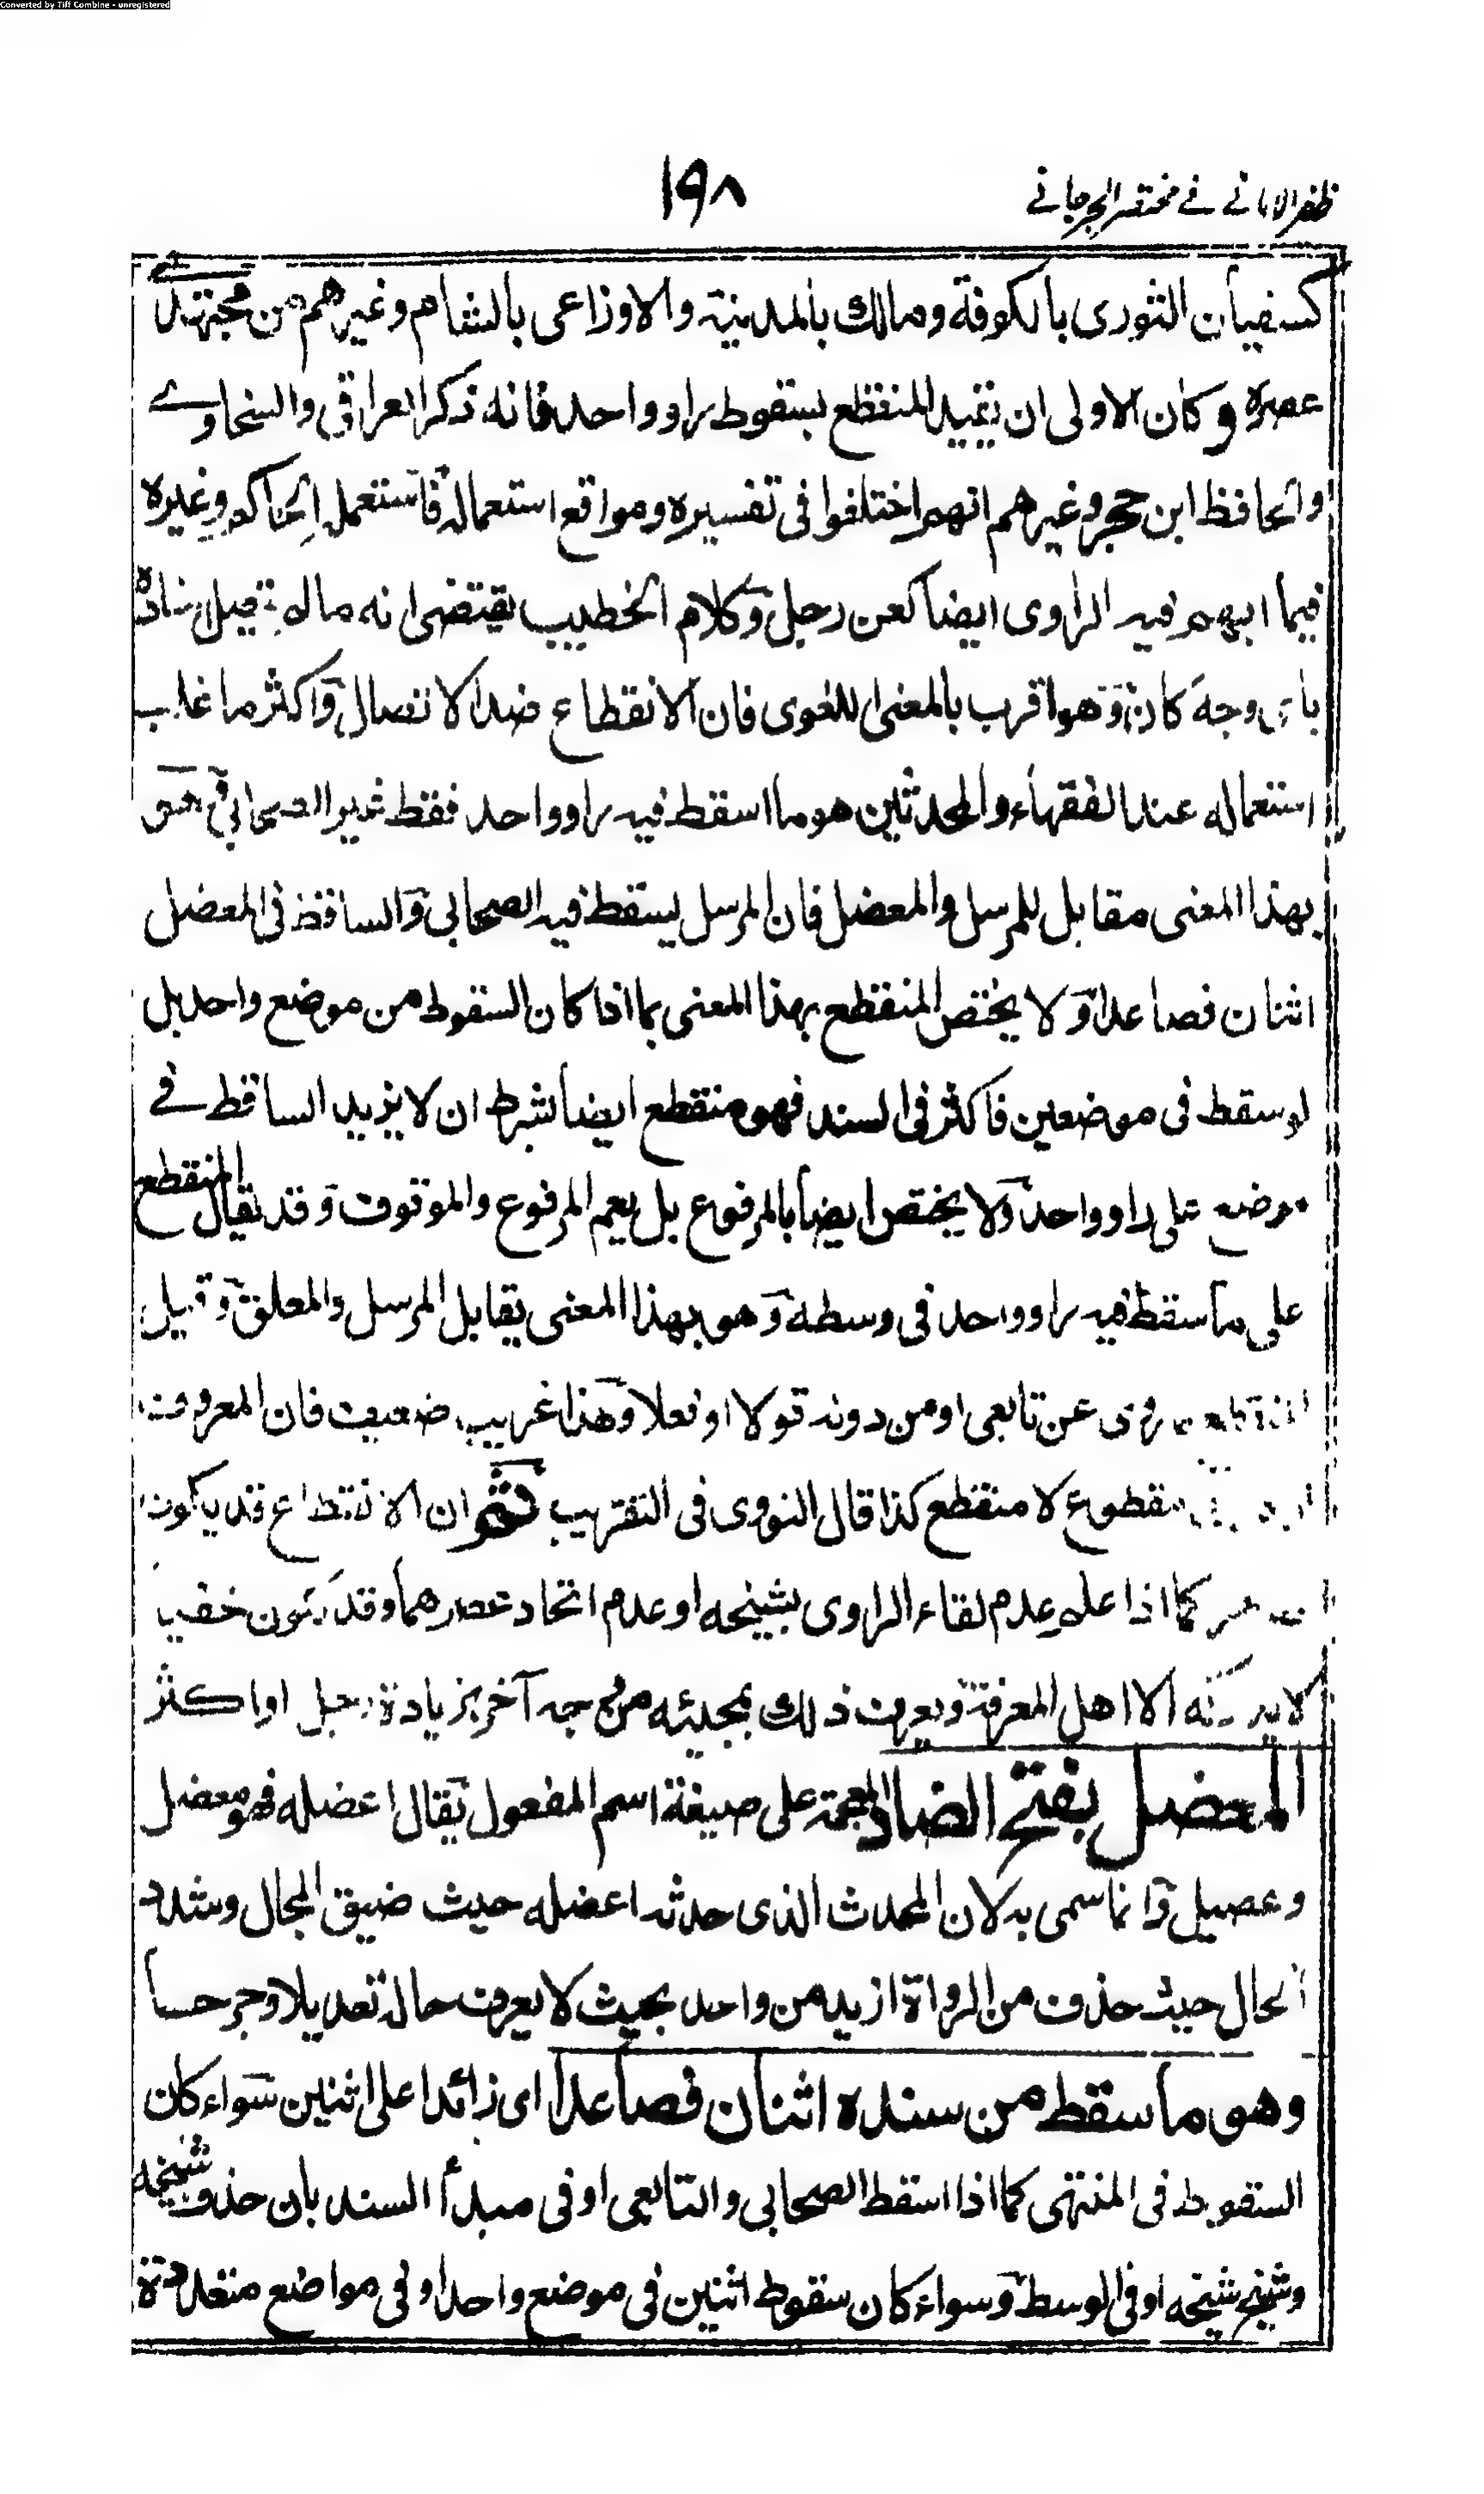 Converted by Tiff Combine - unregistered
ظفر الامانے فے مختصر الجرجانے
۱۹۸
کسفیان الثوری بالکوفة ومالك بالمدینة والاوزاعی بالشام وغیرهم من مجتهدے
عصره وکان الاولی ان یقید المنقطع بسقوط راو واحد فانه ذکر العراقی والسخاوے
والحافظ ابن حجر وغیرهم انهم اختلفوا فی تفسیره ومواقع استعماله فاستعمل الحاکم وغیره
فیما ابهم فیه الراوی ایضا کعن رجل وکلام الخطیب یقتضی انه مالم یتصل اسناده
بای وجه کان وهو اقرب بالمعنی اللغوی فان الانقطاع ضد الاتصال واکثر ما غلب
استعماله عند الفقهاء والمحدثین هو ما اسقط فیه راو واحد فقط غیر الصحابی فهو
بهذا المعنی مقابل للمرسل والمعضل فان المرسل یسقط فیه الصحابی والساقط فی المعضل
اثنان فصاعدا ولا یختص المنقطع بهذا المعنی بما اذا کان السقوط من موضع واحد بل
لو سقط فی موضعین فاکثر فی السند فهو منقطع ایضا بشرط ان لا یزید الساقط فے
موضع علی راو واحد ولا یختص ایضا بالمرفوع بل یعم المرفوع والموقوف وقد یقال المنقطع
علی ما سقط فیه راو واحد فی وسطه وهو بهذا المعنی یقابل المرسل والمعلق وقیل
المنقطع روی عن تابعی او من دونه قولا او فعلا وهذا غریب ضعیف فان المعروف
مقطوع لا منقطع کذا قال النووی فی التقریب ثم ان الانقطاع قد یکون
کما اذا علم عدم لقاء الراوی بشیخه او عدم اتحاد عصرهما وقد یکون خفیا
لا یدرکه الا اهل المعرفة ویعرف ذلك بمجیئه من وجه آخر بزیادة رجل او اکثر
المعضل بفتح الضاد المعجمة علی صیغة اسم المفعول یقال اعضله فهو معضل
وعضیل وانما سمی به لان المحدث الذی حدثه اعضله حیث ضیق المجال وشدد
الحال حیث حذف من الرواة ازید من واحد بحیث لا یعرف حاله تعدیلا وجرحا
وهو ما سقط من سنده اثنان فصاعدا ای زائدا علی اثنین سواء کان
السقوط فی المنتهی کما اذا اسقط الصحابی والتابعی او فی مبدأ السند بان حذف شیخه
وشیخ شیخه او فی الوسط وسواء کان سقوط اثنین فی موضع واحد او فی مواضع متعددة